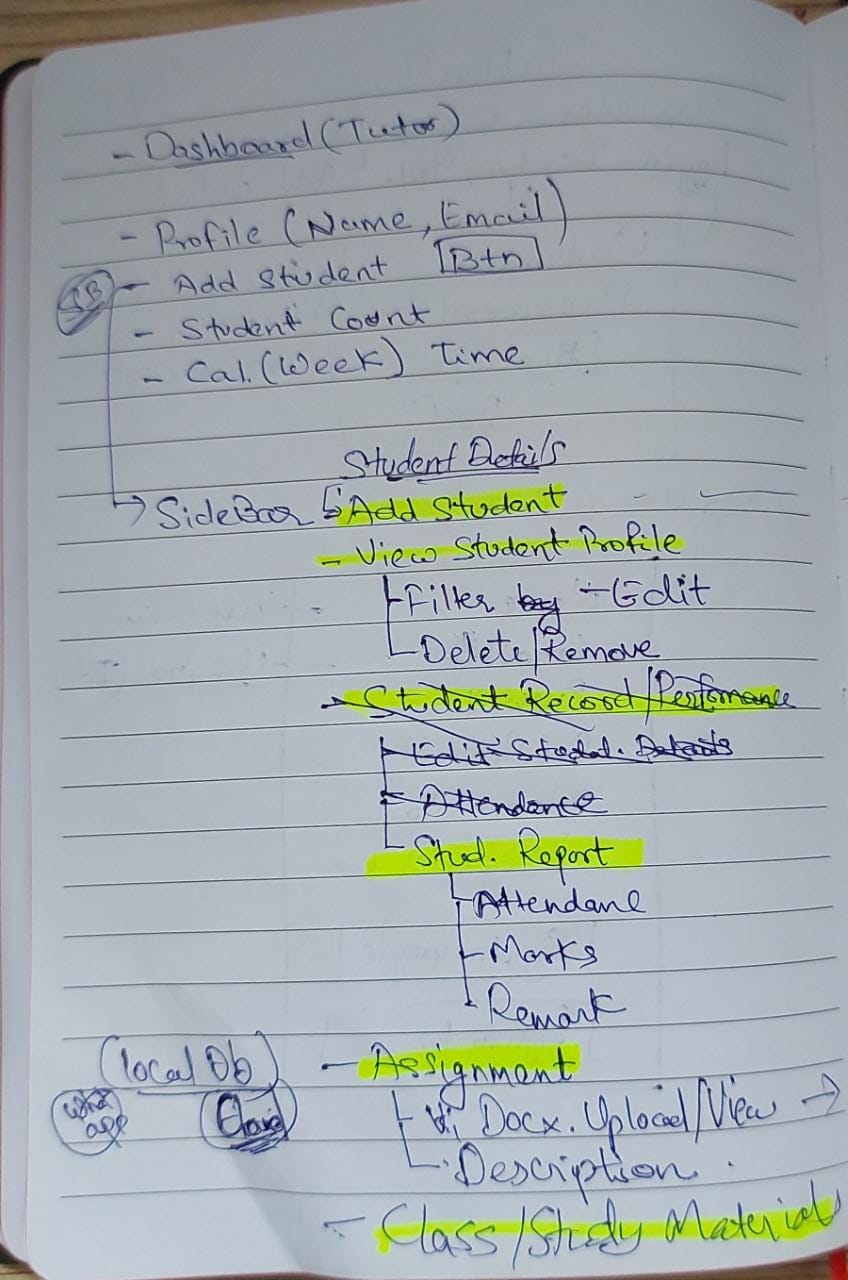 - Dashboard (Tutor)
- Profile (Name, Email)
SB - Add Student [Btn]
- Student Count
- Cal. (Week) Time
Student Details
→ SideBar Add Student
- View Student Profile
Filter by - Edit
Delete/Remove
Student Record/Perfomance
Edit Studet. Details
Attendance
Stud. Report
Attendane
Marks
Remark
(local Db) - Assignment
What app Docx. Upload/View →
Description.
- Class/Study Materials